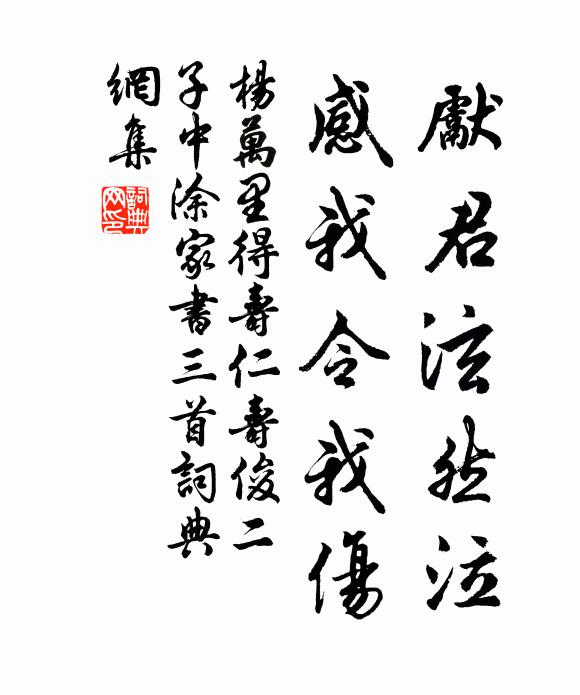 獻君泫然泣
感我令我傷
楊萬里得壽仁壽俊二
子中涂家書三首詞典
網集
詞典網印